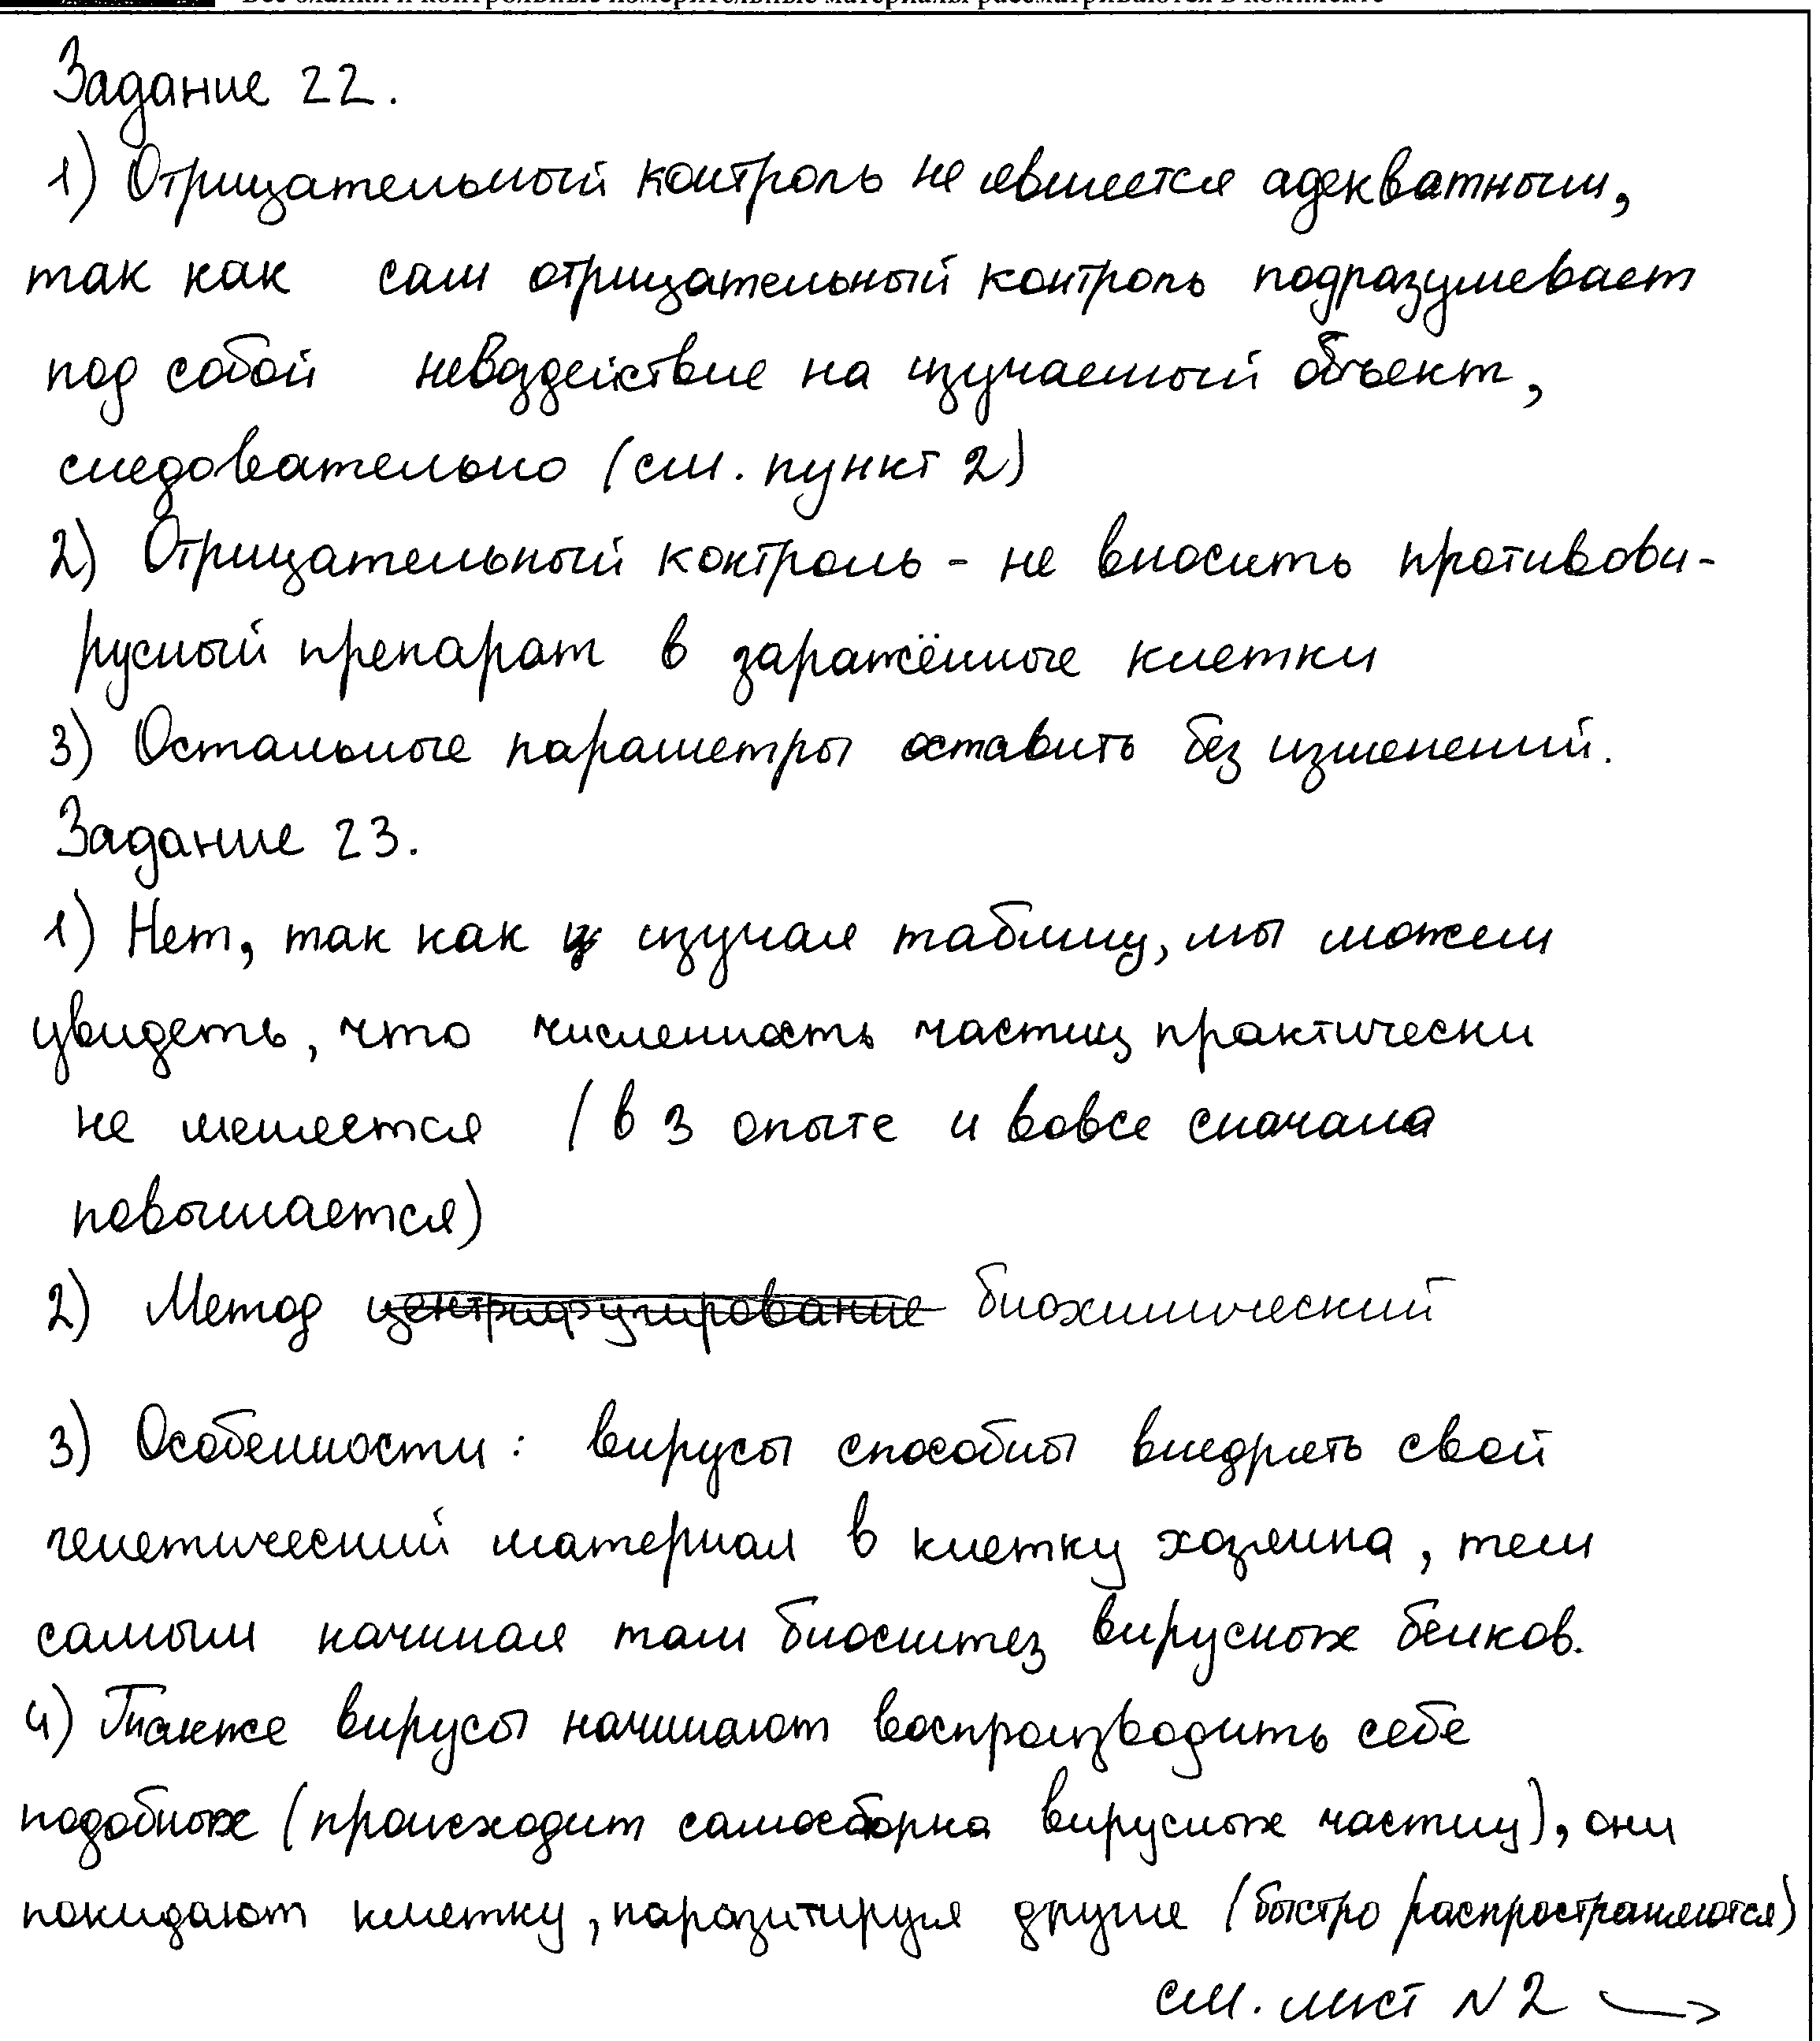 Все бланки и контрольные измерительные материалы рассматриваются в комплекте
Задание 22.
1) Отрицательный контроль не является адекватным,
так как сам отрицательный контроль подразумевает
под собой невоздействие на изучаемый объект,
следовательно (см. пункт 2)
2) Отрицательный контроль - не вносить противови-
русный препарат в заражённые клетки
3) Остальные параметры оставить без изменений.
Задание 23.
1) Нет, так как изучая таблицу, мы можем
увидеть, что численность частиц практически
не меняется (в 3 опыте и вовсе сначала
повышается)
2) Метод центрифугирование биохимический
3) Особенности: вирусы способны внедрять свой
генетический материал в клетку хозяина, тем
самым начиная там биосинтез вирусных белков.
4) Также вирусы начинают воспроизводить себе
подобных (происходит самосборка вирусных частиц), они
покидают клетку, паразитируя другие (быстро распространяются)
см. лист N2 →